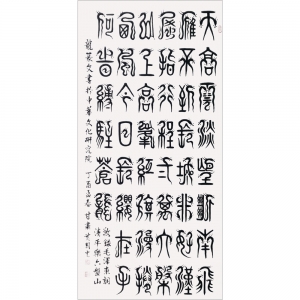 天高雲淡望斷南飛
雁不到長城非好漢
屈指行程二萬六盤
山上高峰紅旗漫卷
西風今日長纓在手
何時縛住蒼龍
敬錄毛澤東詞
清平樂六盤山
龍篆文書於中華文化研究院 丁酉孟春 甘肅